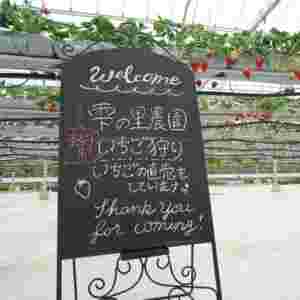 Welcome
雫の里農園
いちご狩り
いちごの直売も
しています♪
Thank you
for coming!